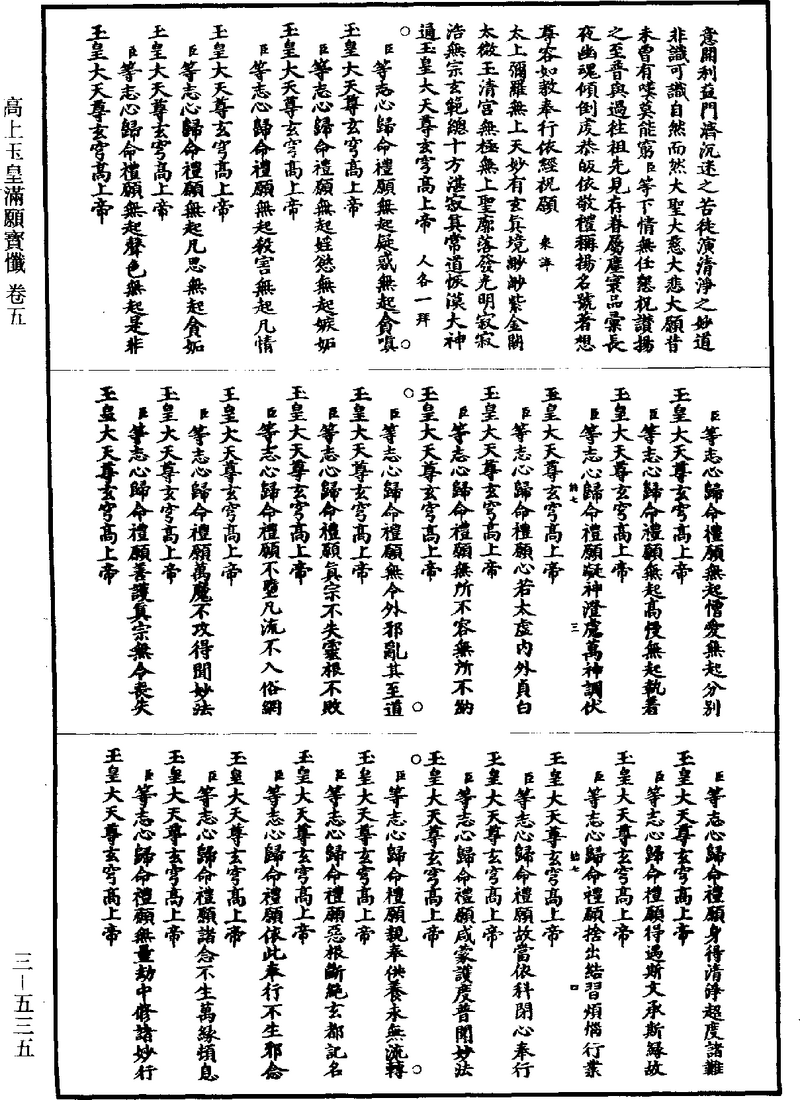 意開利益門濟沉迷之苦徒演清淨之妙道
非識可識自然而然大聖大慈大悲大願昔
未曾有嘆莫能窮臣等下情無任懇祝讚揚
之至普與過往祖先見存眷屬塵寰品彙長
夜幽魂傾倒虔恭皈依敬禮稱揚名號著想
尊容如教奉行依經祝願 衆洋
太上彌羅無上天妙有玄真境紗紗紫金闕
太微玉清宮無極無上聖廓落發光明寂寂
浩無宗玄範總十方湛寂真常道恢漠大神
通玉皇大天尊玄穹高上帝 人各一拜
○ 臣等志心歸命禮願無起疑惑無起貪嗔 ○
玉皇大天尊玄穹高上帝
臣等志心歸命禮願無起婬慾無起嫉妬
玉皇大天尊玄穹高上帝
臣等志心歸命禮願無起殺害無起凡情
玉皇大天尊玄穹高上帝
臣等志心歸命禮願無起凡思無起貪妬
玉皇大天尊玄穹高上帝
臣等志心歸命禮願無起聲色無起是非
玉皇大天尊玄穹高上帝
臣等志心歸命禮願無起憎愛無起分別
玉皇大天尊玄穹高上帝
臣等志心歸命禮願無起高慢無起執着
玉皇大天尊玄穹高上帝
臣等志心歸命禮願凝神澄慮萬神調伏
三
玉皇大天尊玄穹高上帝
臣等志心歸命禮願心若太虛內外貞白
玉皇大天尊玄穹高上帝
臣等志心歸命禮願無所不容無所不納
玉皇大天尊玄穹高上帝
○ 臣等志心歸命禮願無令外邪亂其至道 ○
玉皇大天尊玄穹高上帝
臣等志心歸命禮願真宗不失靈根不敗
玉皇大天尊玄穹高上帝
臣等志心歸命禮願不墮凡流不入俗網
玉皇大天尊玄穹高上帝
臣等志心歸命禮願萬魔不攻得聞妙法
玉皇大天尊玄穹高上帝
臣等志心歸命禮願善護真宗無令喪失
玉皇大天尊玄穹高上帝
臣等志心歸命禮願身得清淨超度諸難
玉皇大天尊玄穹高上帝
臣等志心歸命禮願得遇斯文承斯緣故
玉皇大天尊玄穹高上帝
臣等志心歸命禮願捨出結習煩惱行業
四
玉皇大天尊玄穹高上帝
臣等志心歸命禮願故當依科閉心奉行
玉皇大天尊玄穹高上帝
臣等志心歸命禮願咸蒙護度普聞妙法
玉皇大天尊玄穹高上帝
○ 臣等志心歸命禮願親奉供養永無流轉 ○
玉皇大天尊玄穹高上帝
臣等志心歸命禮願惡根斷絕玄都記名
玉皇大天尊玄穹高上帝
臣等志心歸命禮願依此奉行不生邪念
玉皇大天尊玄穹高上帝
臣等志心歸命禮願諸念不生萬緣頓息
玉皇大天尊玄穹高上帝
臣等志心歸命禮願無量劫中修諸妙行
玉皇大天尊玄穹高上帝
高上玉皇滿願寶懺 卷五
三－五三五